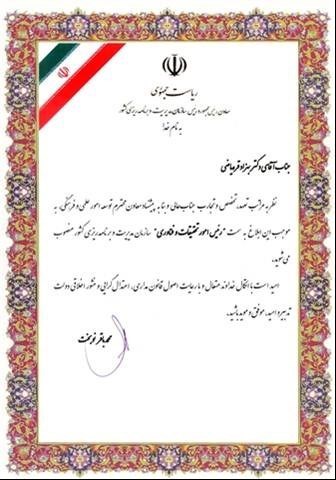 ریاست جمهوری
معاون رییس جمهور و رییس سازمان مدیریت و برنامه‌ریزی کشور
به نام خدا
جناب آقای دکتر بهزاد قره‌یاضی
نظر به مراتب تعهد، تخصص و تجارب جنابعالی و بنا به پیشنهاد معاون محترم توسعه امور علمی و فرهنگی، به
موجب این ابلاغ به سمت "رئیس امور تحقیقات و فناوری" سازمان مدیریت و برنامه‌ریزی کشور منصوب
می‌شوید.
امید است با اتکال خداوند متعال و با رعایت اصول قانون مداری، اعتدال گرایی و منشور اخلاقی دولت
تدبیر و امید، موفق و موید باشید.
محمدباقر نوبخت